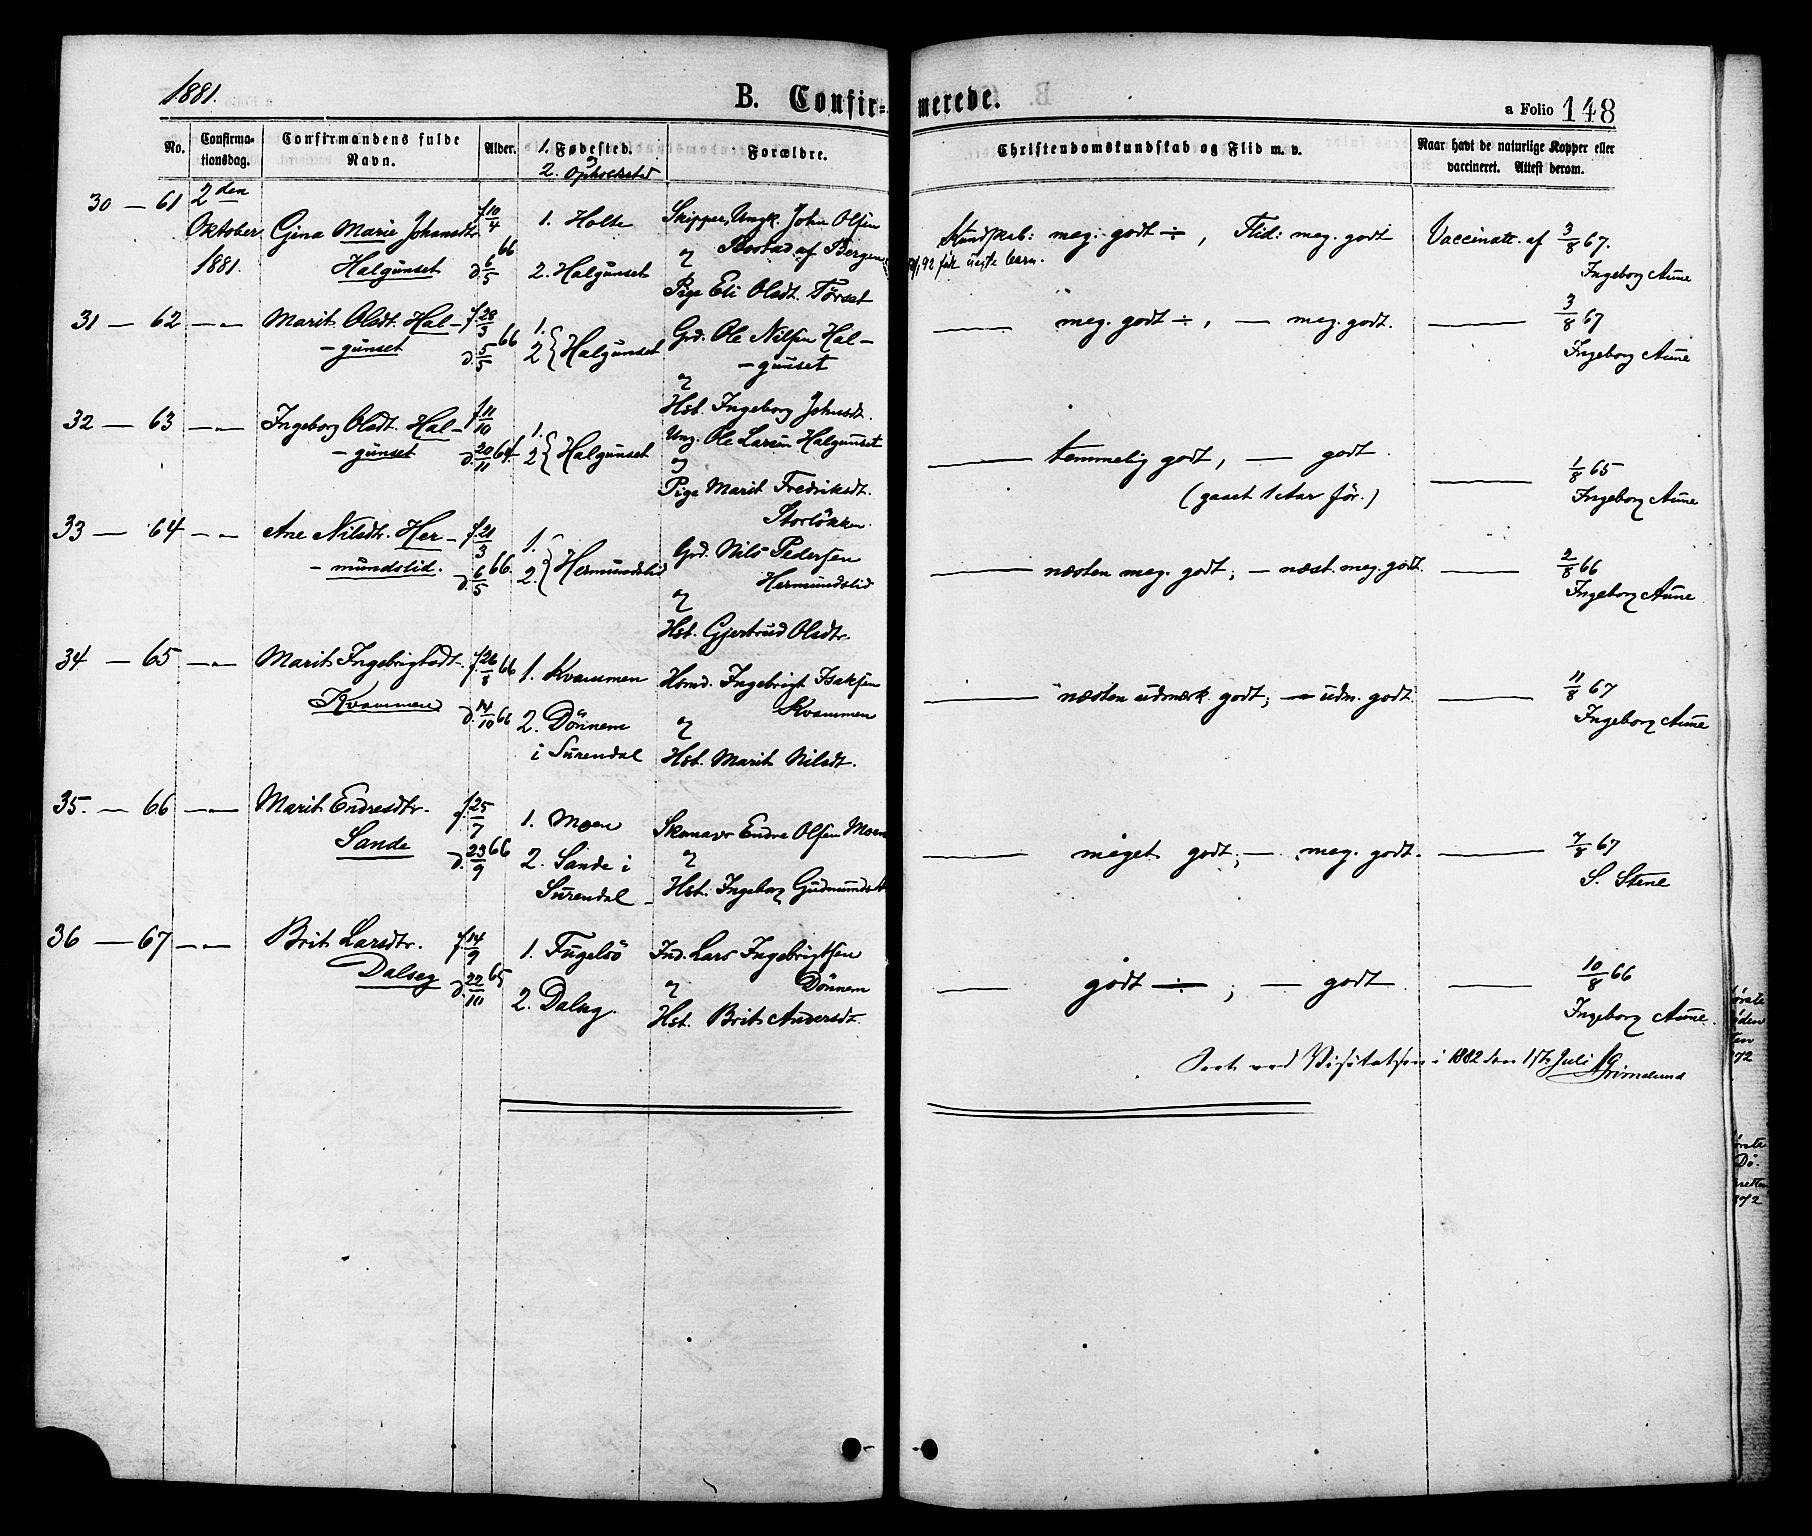 1881.
B. Confirmerede.
a Folio 148
No.
Confirmationsdag.
Confirmandens fulde Navn.
Alder.
1. Fødested.
2. Opholdssted
Forældre.
Christendomskundskab og Flid m. v.
Naar havt de naturlige Kopper eller vaccineret. Attest derom.
30 — 61 2den Oktober 1881.
Gina Marie Johansdtr
Halgunset
f. 10/4 66
d. 6/5
1. Holte
2. Halgunset
Skipper, Ungk. John Olsen
af Bergen
og
Pige Eli Olsdt. Tørset
Kundskab: meg. godt ÷, Flid: meg. godt
92 fik uegte barn.
Vaccinatt. af 3/8 67.
Ingeborg Aune
31 — 62 — „ —
Marit Olsdt. Hal-
-gunset
f. 28/3 66
d. 5/5
1.
2 { Halgunset
Grd. Ole Nilsen Hal-
-gunset
og
Hst. Ingeborg Johnsdt.
— meg. godt ÷, — meg. godt. —
3/8 67
Ingeborg Aune
32 — 63 — „ —
Ingeborg Olsdt. Hal-
-gunset
f. 11/10
d. 20/11 64
1.
2 { Halgunset
Ung. Ole Larsen Halgunset
og
Pige Marit Fredriksdt.
Storløkken.
— temmelig godt, — godt. —
(gaaet 1 Aar før.)
1/8 65
Ingeborg Aune
33 — 64 — „ —
Ane Nilsdtr. Her-
-mundslid.
f. 21/3
d. 6/5 66.
1.
2. { Hermundslid
Grd. Nils Pedersen
Hermundslid
og
Hst. Gjertrud Olsdtr.
— næsten meg. godt; — næst. meg. godt. —
2/8 66
Ingeborg Aune
34 — 65 — „ —
Marit Ingebrigtsdt.
Kvammen
f. 26/8 66
d. 14/10 66
1. Kvammen
2. Dønnem
i Surendal
Hsmd. Ingebrigt Isaksen
Kvammen
og
Hst. Marit Nilsdt.
— næsten udmærk. godt; — udm. godt. —
11/8 67
Ingeborg Aune
35. — 66 — „ —
Marit Endresdtr.
Sande
f. 25/7
d. 23/9 66
1. Moen
2. Sande i
Surendal
Endre Olsen Moen
og
Hst. Ingeborg Gudmundsdt
— meget godt; — meg. godt. —
7/8 67
S. Stene
36 — 67 — „ —
Brit Larsdtr.
Dalseg
f. 14/9
d. 22/10 65
1. Fugelsø
2. Dalseg.
Ind. Lars Ingebrigtsen
Dönnem
og
Hst. Brit Andersdt.
— godt ÷; — godt. —
10/8 66
Ingeborg Aune.
Seet ved Visitatsen i 1882 den 1ste Juli
Grimelund